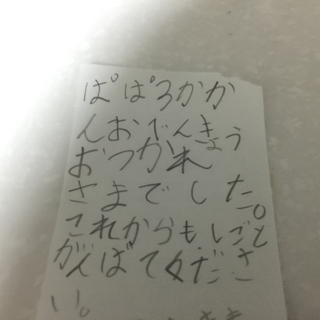 ぱぱろかか
んおでんきょう
おつかれ
さまでした。
これからも、しごと
がんばてくださ
い。